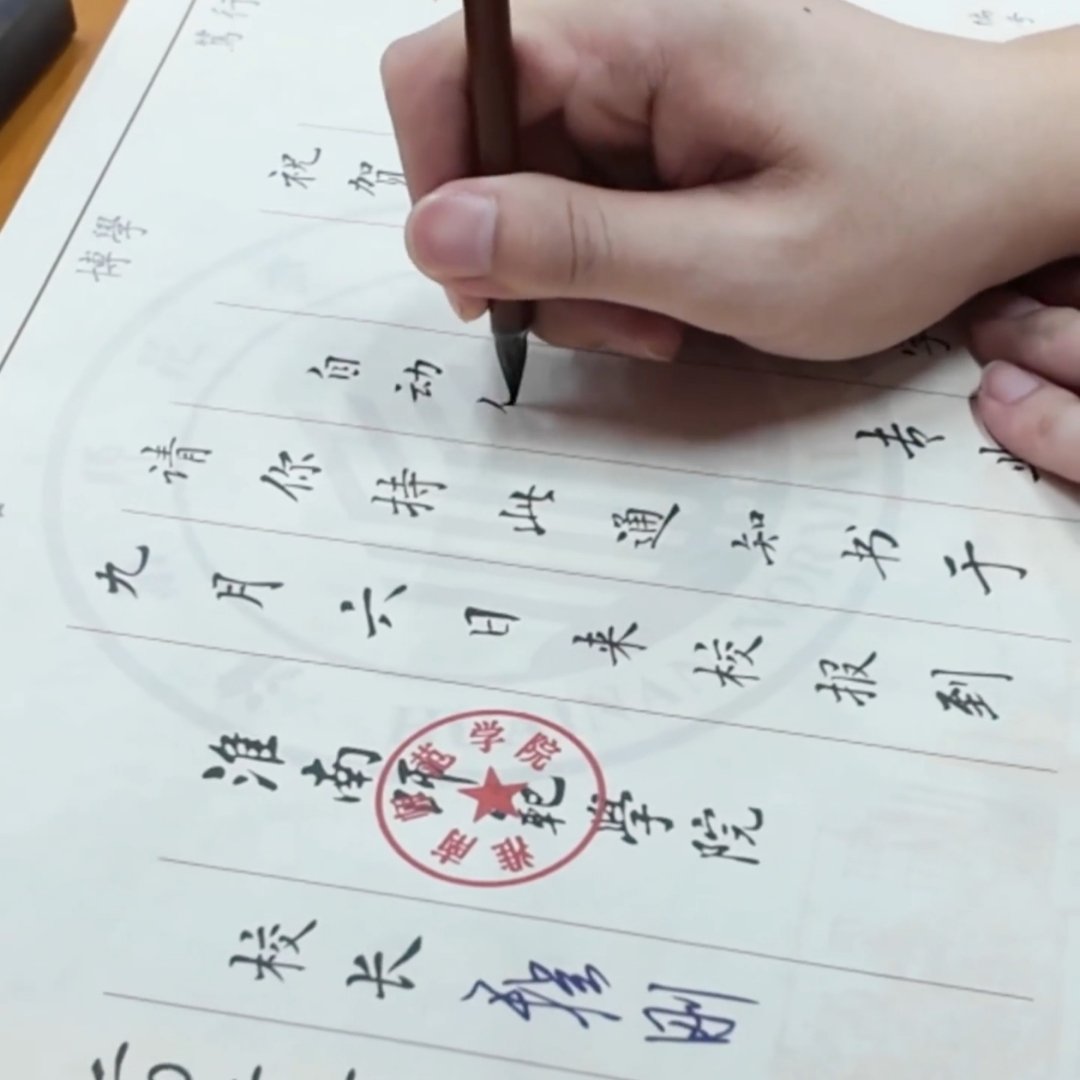 篤行
博學
祝贺
学
自动亻专业
请你持此通知书于
九月六日来校报到
淮南師範學院
淮南师范学院
校长